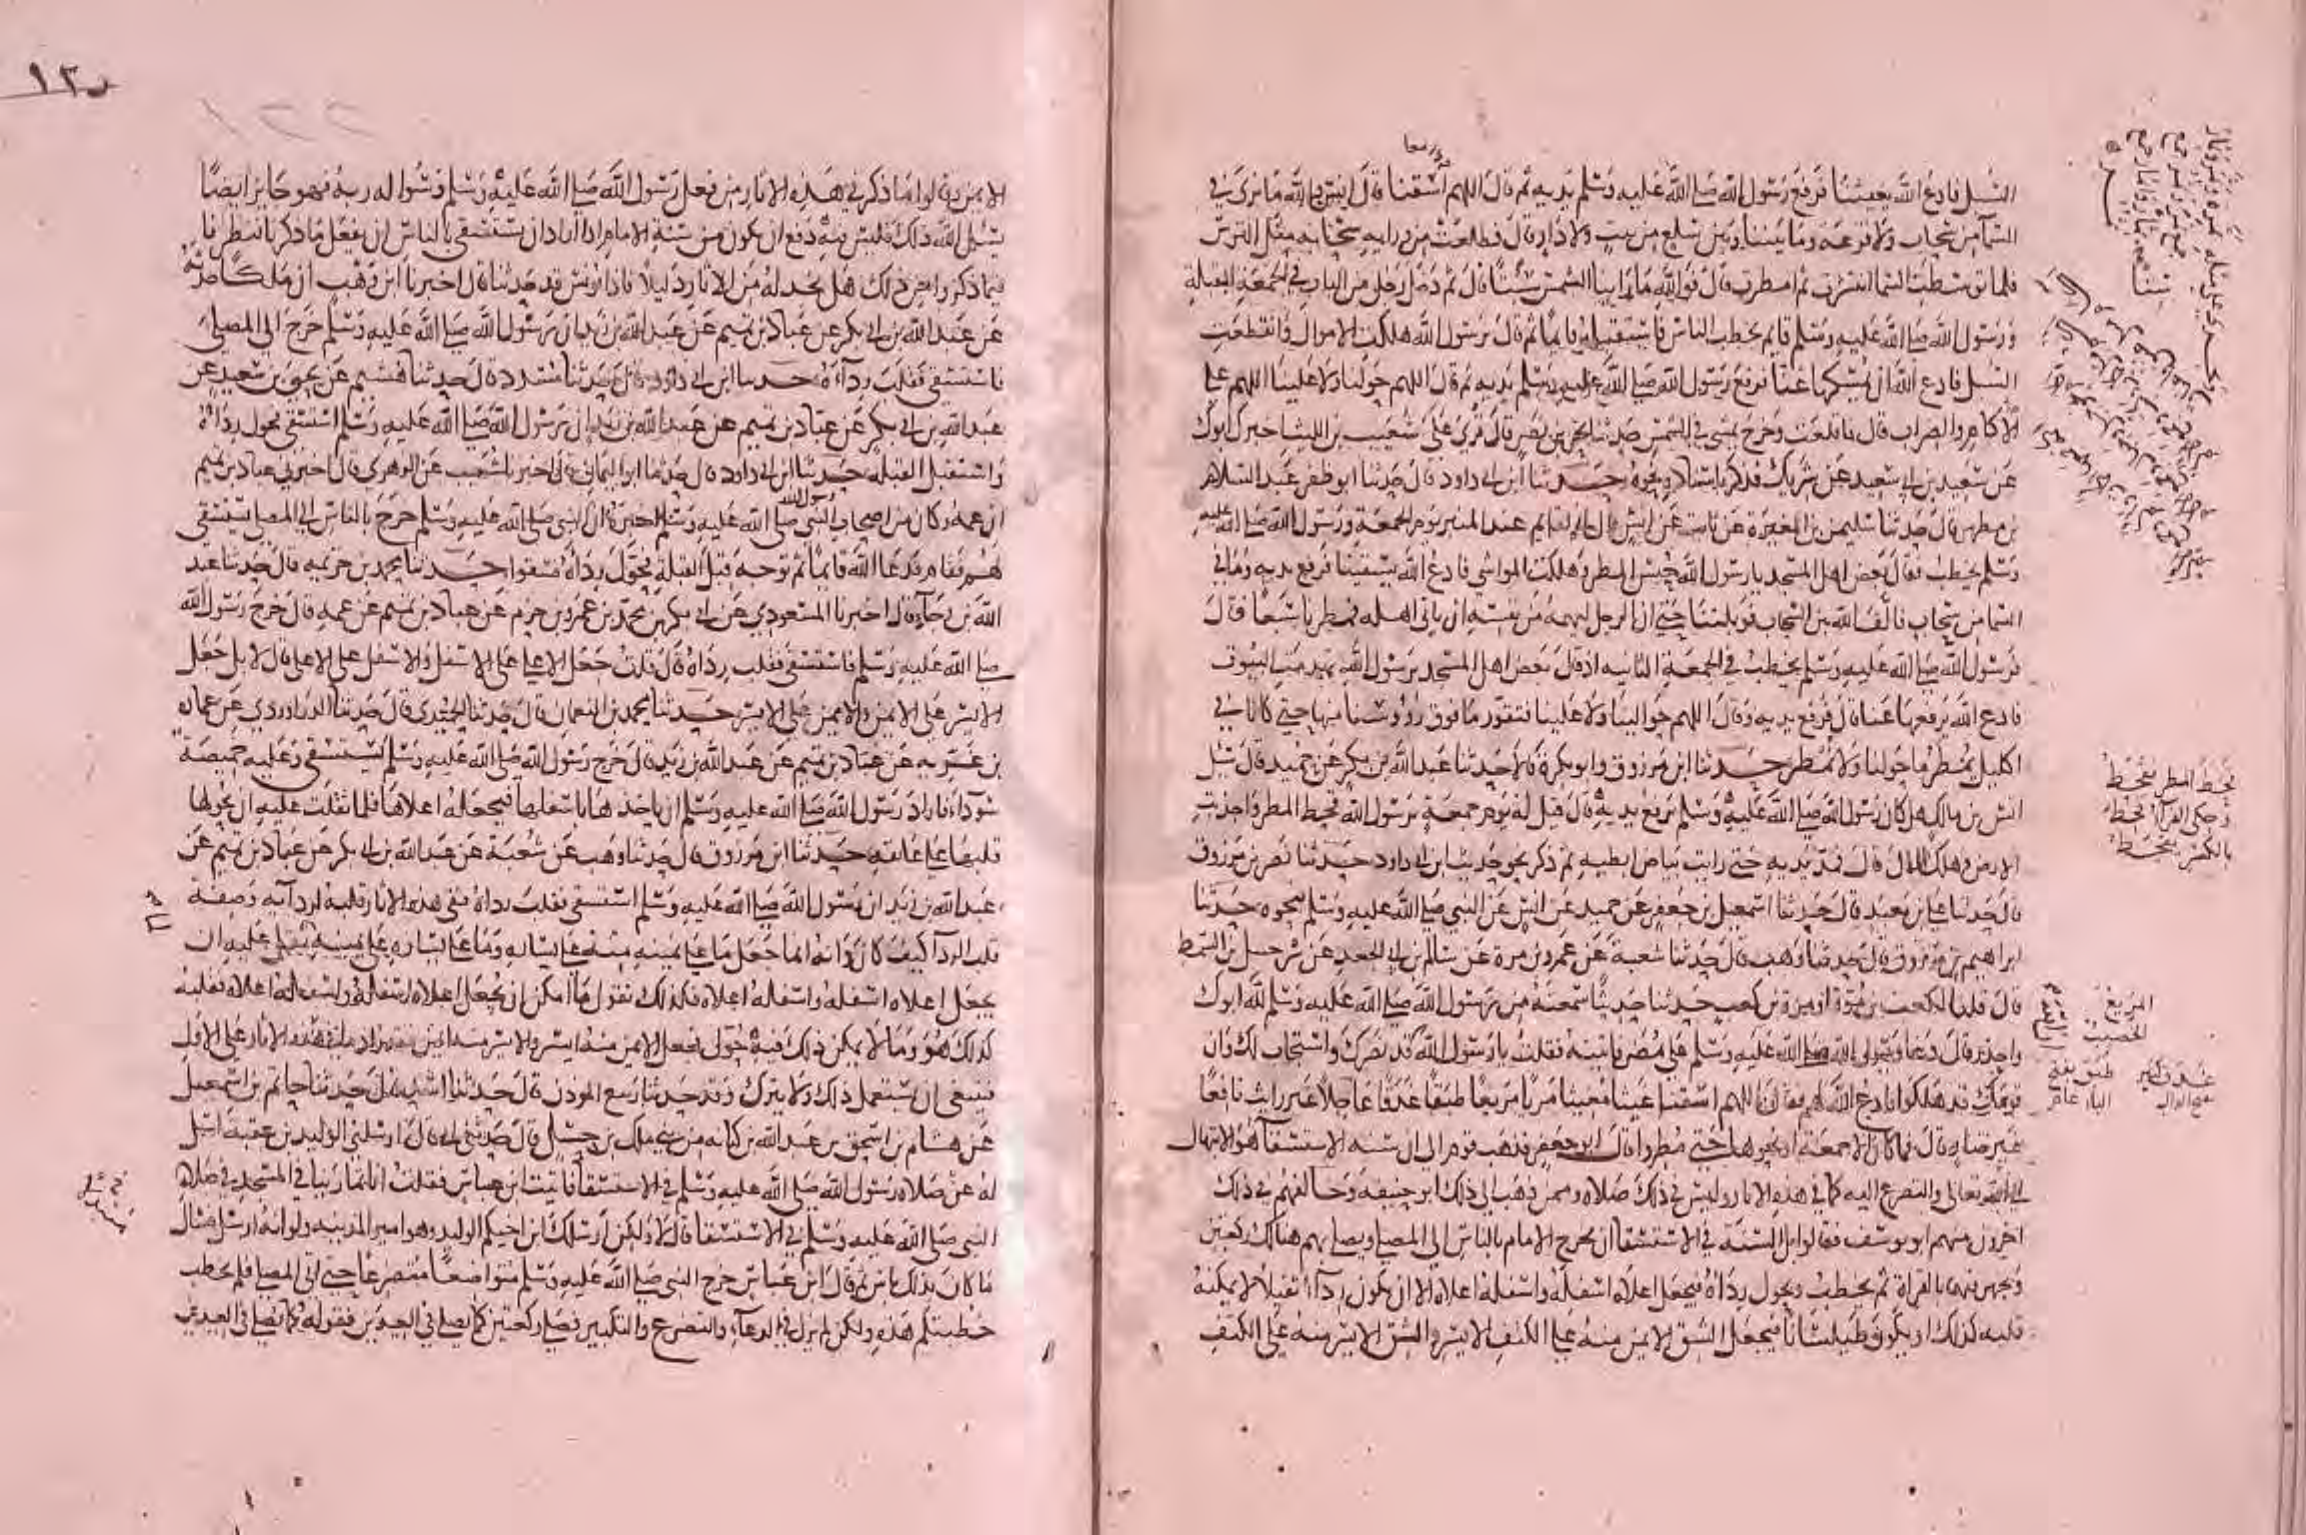 السبل فادع الله يغيثنا فرفع رسول الله صلى الله عليه وسلم يديه ثم قال اللهم اسقنا قال انس والله ما نرى في
السما من سحاب ولا قزعة وما بيننا وبين سلع من بيت ولا دار قال فطلعت من ورايه سحابة مثل الترس
فلما توسطت السما انتشرت ثم امطرت قال فوالله ما راينا الشمس سبتا قال ثم دخل رجل من الباب في الجمعة المقبلة
ورسول الله صلى الله عليه وسلم قايم يخطب الناس فاستقبله قايما ثم قال يرسول الله هلكت الاموال وانقطعت
السبل فادع الله ان يمسكها عنا فرفع رسول الله صلى الله عليه وسلم يديه ثم قال اللهم حولنا ولا علينا اللهم على
الاكام والضراب قال فاقلعت وخرج يمشي في الشمس حدثنا بحر بن نصر قال قرئ على شعيب بن الليث اخبرك ابوك
عن سعيد بن ابي سعيد عن شريك فذكر باسناده نحوه حدثنا ابن ابي داود قال حدثنا ابو ظفر عبد السلام
بن مطهر قال حدثنا سليمن بن المغيرة عن ثابت عن انس قال اني لقايم عند المنبر يوم الجمعة ورسول الله صلى الله عليه
وسلم يخطب فقال بعض اهل المسجد يا رسول الله حبس المطر وهلكت المواشي فادع الله يسقينا فرفع يديه وما في
السما من سحاب فالف الله بين السحاب فوبلتنا حتى ان الرجل ليهمه من نفسه ان ياتي اهله فمطرنا سبعا قال
فرسول الله صلى الله عليه وسلم يخطب في الجمعة الثانية اذ قال بعض اهل المسجد يرسول الله تهدمت البيوت
فادع الله يرفعها عنا قال فرفع يديه وقال اللهم حوالينا ولا علينا فتقور ما فوق رؤوسنا منها حتى كانا في
اكليل يمطر ما حولنا ولا نمطر حدثنا ابن مرزوق وابو بكرة قالا حدثنا عبد الله بن بكر عن حميد قال سئل
انس بن مالك هل كان رسول الله صلى الله عليه وسلم يرفع يديه قال قيل له يوم جمعة يرسول الله قحط المطر واجدبت
الارض وهلك المال قال فمد يديه حتى رايت بياض ابطيه ثم ذكر نحو حديث ابن ابي داود حدثنا نصر بن مرزوق
قال حدثنا علي بن معبد قال حدثنا اسمعيل بن جعفر عن حميد عن انس عن النبي صلى الله عليه وسلم نحوه حدثنا
ابراهيم بن مرزوق قال حدثنا وهب قال حدثنا شعبة عن عمرو بن مرة عن سالم بن ابي الجعد عن شرحبيل بن السمط
قال قلنا لكعب بن مرة او مرة بن كعب حدثنا حديثا سمعته من رسول الله صلى الله عليه وسلم لله ابوك
واحذر قال دعا رسول الله صلى الله عليه وسلم على مضر فاتيته فقلت يا رسول الله قد نصرك واستجاب لك وان
قومك قد هلكوا فادع الله لهم فقال اللهم اسقنا غيثا مغيثا مريا مريعا طبقا غدقا عاجلا غير رايث نافعا
غير ضار قال فما كان الا جمعة او نحوها حتى مطروا قال ابو جعفر فذهب قوم الى ان سنة الاستسقا هو الابتهال
الى الله تعالى والتضرع اليه كما في هذه الاثار وليس في ذلك صلاة وممن ذهب الى ذلك ابو حنيفة وخالفهم في ذلك
اخرون منهم ابو يوسف فقالوا بل السنة في الاستسقا ان يخرج الامام بالناس الى المصلى ويصلي بهم هناك ركعتين
ويجهر فيهما بالقراة ثم يخطب ويحول رداه فيجعل اعلاه اسفله واسفله اعلاه الا ان يكون رداء ثقيلا لا يمكنه
قلبه كذلك او يكون طيلسانا فيجعل الشق الايمن منه على الكتف الايسر والشق الايسر منه على الكتف
قحط المطر يقحط
وحكى الفراء قحط
بالكسر يقحط
المريع
الخصيب
١٢٢
الايمن وقالوا ما ذكر في هذه الاثار من فعل رسول الله صلى الله عليه وسلم وسؤاله ربه فهو جايز ايضا
يسئل الله ذلك فليس فيه دفع ان يكون من سنة الامام اذا اراد ان يستسقي بالناس ان يفعل ما ذكرنا فنظرنا
فيما ذكروا من ذلك هل نجد له من الاثار دليلا فاذا يونس قد حدثنا قال اخبرنا ابن وهب ان ملكا حدثه
عن عبد الله بن ابي بكر عن عباد بن تميم عن عبد الله بن زيد ان رسول الله صلى الله عليه وسلم خرج الى المصلى
فاستسقى فقلب رداءه حدثنا ابن ابي داود قال حدثنا مسدد قال حدثنا هشيم عن يحيى بن سعيد عن
عبد الله بن ابي بكر عن عباد بن تميم عن عبد الله بن زيد ان رسول الله صلى الله عليه وسلم استسقى فحول رداه
واستقبل القبلة حدثنا ابن ابي داود قال حدثنا ابو اليمان قال اخبرنا شعيب عن الزهري قال اخبرني عباد بن تميم
ان عمه وكان من اصحاب النبي صلى الله عليه وسلم اخبره ان النبي صلى الله عليه وسلم خرج بالناس الى المصلى يستسقي
لهم فقام فدعا الله قايما ثم توجه قبل القبلة فحول رداه فسقوا حدثنا محمد بن خزيمة قال حدثنا عبد
الله بن رجاء قال اخبرنا المسعودي عن ابي بكر بن محمد بن عمرو بن حزم عن عباد بن تميم عن عمه قال خرج رسول الله
صلى الله عليه وسلم فاستسقى فقلب رداه قال قلت جعل الاعلى على الاسفل والاسفل على الاعلى قال لا بل جعل
الايسر على الايمن والايمن على الايسر حدثنا محمد بن النعمان قال حدثنا الحميدي قال حدثنا الدراوردي عن عمارة
بن غزية عن عباد بن تميم عن عبد الله بن زيد قال خرج رسول الله صلى الله عليه وسلم يستسقي وعليه خميصة
سوداء فاراد رسول الله صلى الله عليه وسلم ان ياخذها باسفلها فيجعله اعلاها فلما ثقلت عليه ان يحولها
قلبها على عاتقه حدثنا ابن مرزوق قال حدثنا وهب عن شعبة عن عبد الله بن ابي بكر عن عباد بن تميم عن
عبد الله بن زيد ان رسول الله صلى الله عليه وسلم استسقى فقلب رداه ففي هذه الاثار قلبه لردايه وصفة
قلب الردا كيف كان وانه انما جعل ما على يمينه منه على يساره وما على يساره على يمينه لما ثقل عليه ان
يجعل اعلاه اسفله واسفله اعلاه فكذلك نقول ما امكن ان يجعل اعلاه اسفله واسفله اعلاه فقلبه
كذلك هو وما لا يمكن ذلك فيه حول فجعل الايمن منه ايسر والايسر منه ايمن فقد زاد ما في هذه الاثار على الاول
فينبغي ان يستعمل ذلك ولا يترك وقد حدثنا ربيع الموذن قال حدثنا اسد قال حدثنا حاتم بن اسمعيل
عن هشام بن اسحق بن عبد الله بن كنانة من بني ملك بن حسل قال حدثني ابي قال ارسلني الوليد بن عقبة اسل
له عن صلاة رسول الله صلى الله عليه وسلم في الاستسقا فاتيت ابن عباس فقلت انا تمارينا في المسجد في صلاة
النبي صلى الله عليه وسلم في الاستسقا قال لا ولكن ارسلك ابن اخيكم الوليد وهو امير المدينة ولو انه ارسل فسال
ما كان بذلك باس ثم قال ابن عباس خرج النبي صلى الله عليه وسلم متواضعا متضرعا حتى اتى المصلى فلم يخطب
خطبتكم هذه ولكن لم يزل في الدعاء والتضرع والتكبير فصلى ركعتين كما يصلي في العيدين فقوله كما يصلي في العيدين